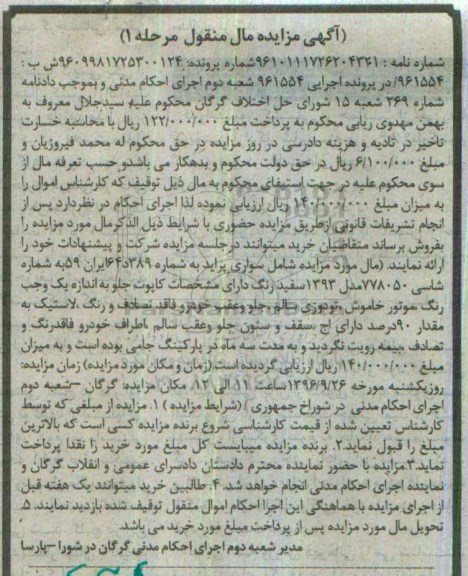 (آگهی مزایده مال منقول مرحله ۱)
شماره نامه : ۹۶۱۰۱۱۱۷۲۶۲۰۴۳۴۱ شماره پرونده: ۹۶۰۹۹۸۱۷۲۵۳۰۰۱۲۴ ش ب :
۹۶۱۵۵۴/ در پرونده اجرایی ۹۶۱۵۵۴ شعبه دوم اجرای احکام مدنی و بموجب دادنامه
شماره ۳۶۹ شعبه ۱۵ شورای حل اختلاف گرگان محکوم علیه سیدجلال معروف به
بهمن مهدوی ریابی محکوم به پرداخت مبلغ ۱۲۲/۰۰۰/۰۰۰ ریال با محاسبه خسارت
تاخیر در تادیه و هزینه دادرسی در روز مزایده در حق محکوم له محمد فیروزیان و
مبلغ ۶/۱۰۰/۰۰۰ ریال در حق دولت محکوم و بدهکار می باشدو حسب تعرفه مال از
سوی محکوم علیه در جهت استیفای محکوم به مال ذیل توقیف که کارشناس اموال را
به میزان مبلغ ۱۴۰/۰۰۰/۰۰۰ ریال ارزیابی نموده لذا اجرای احکام در نظردارد پس از
انجام تشریفات قانونی ازطریق مزایده حضوری با شرایط ذیل الذکرمال مورد مزایده را
بفروش برساند متقاضیان خرید میتوانند درجلسه مزایده شرکت و پیشنهادات خود را
ارائه نمایند. (مال مورد مزایده شامل سواری پراید به شماره ۳۸۹د۶۴ایران ۵۹به شماره
شاسی ۷۷۸۰۵۰مدل ۱۳۹۳سفید رنگ دارای مشخصات کاپوت جلو به اندازه یک وجب
رنگ ،موتور خاموش ،تودوزی سالم، جلو وعقب خودرو فاقد تصادف و رنگ ،لاستیک به
مقدار ۹۰درصد دارای آج ،سقف و ستون جلو وعقب سالم ،اطراف خودرو فاقدرنگ و
تصادف ،بیمه رویت نگردید و به مدت سه ماه در پارکینگ جامی بوده است و به میزان
مبلغ ۱۴۰/۰۰۰/۰۰۰ریال ارزیابی گردیده است.(زمان و مکان مورد مزایده) زمان مزایده:
روزیکشنبه مورخه ۱۳۹۶/۹/۲۶ساعت ۱۱ الی ۱۲. مکان مزایده: گرگان –شعبه دوم
اجرای احکام مدنی در شوراخ جمهوری / (شرایط مزایده ) ۱. مزایده از مبلغی که توسط
کارشناس تعیین شده از قیمت کارشناسی شروع برنده مزایده کسی است که بالاترین
مبلغ را قبول نماید.۲. برنده مزایده میبایست کل مبلغ مورد خرید را نقدا پرداخت
نماید.۳.مزایده با حضور نماینده محترم دادستان دادسرای عمومی و انقلاب گرگان و
نماینده اجرای احکام مدنی انجام خواهد شد. ۴. طالبین خرید میتوانند یک هفته قبل
از اجرای مزایده با هماهنگی این اجرا احکام اموال منقول توقیف شده بازدید نمایند. ۵.
تحویل مال مورد مزایده پس از پرداخت مبلغ مورد خرید می باشد.
مدیر شعبه دوم اجرای احکام مدنی گرگان در شورا –پارسا